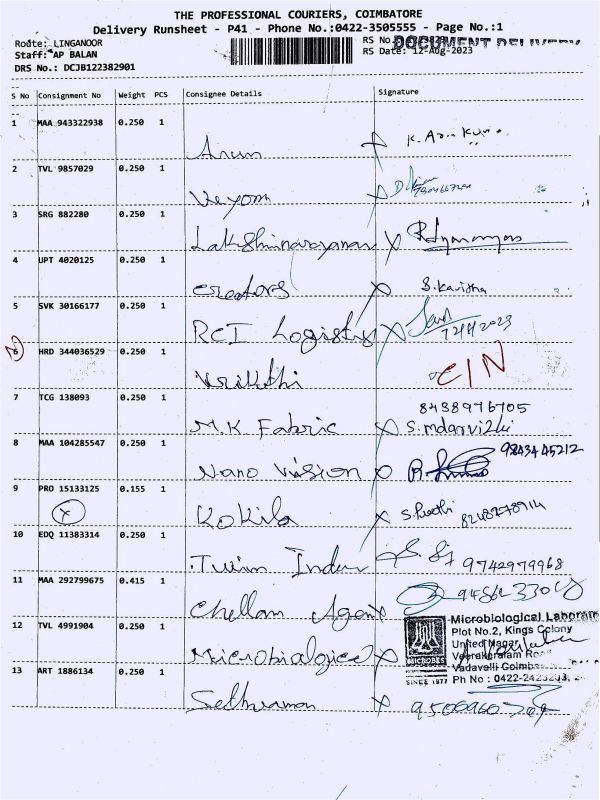 THE PROFESSIONAL COURIERS, COIMBATORE
Delivery Runsheet - P41 - Phone No.:0422-3505555 - Page No.:1
Route: LINGANOOR
RS No
DOCUMENT DELIVERY
Staff: AP BALAN
RS Date: 12-Aug-2023
DRS No.: DCJB122382901
S No Consignment No Weight PCS Consignee Details Signature
1 MAA 943322938 0.250 1 Arun
2 TVL 9857029 0.250 1
3 SRG 882280 0.250 1 Lakshminarayanan
4 UPT 4020125 0.250 1 creators S. Kavitha
5 SVK 30166177 0.250 1 RCI Logistix
6 HRD 344036529 0.250 1 C/N
7 TCG 138093 0.250 1 M.K Fabric 8438976705
8 MAA 104285547 0.250 1 Nano Vision 9843445212
9 PRO 15133125 0.155 1 Kokila
10 EDQ 11383314 0.250 1 9742979968
11 MAA 292799675 0.415 1 Chellam
12 TVL 4991904 0.250 1 Microbiological
Microbiological Laboratory
Plot No.2, Kings Colony
United Nagar
Veerakeralam
MICROBES
Vadavalli
SINCE 1977
Ph No : 0422-
13 ART 1886134 0.250 1 Sethuraman